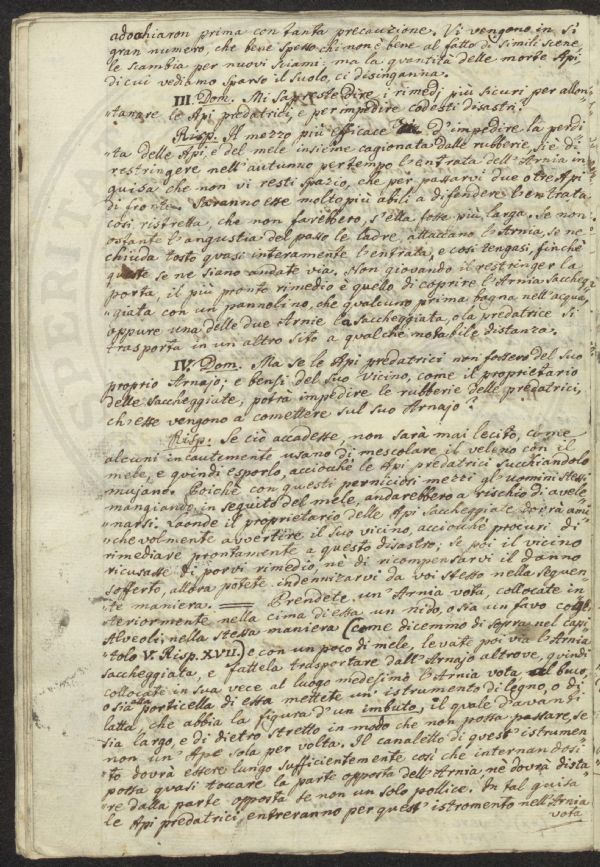 adocchiaron prima con tanta precauzione. Vi vengono in sì
gran numero, che bene spesso chi non è bene al fatto di simili scene,
le scambia per nuovi sciami: ma la quantità delle morte Api,
di cui vediamo sparso il suolo, ci disinganna.
III. Dom. Mi sapreste dire i rimedj più sicuri per allon-
tanare le Api predatrici, e per impedire codesti disastri.
Risp. Il mezzo più efficace d'impedire la perdi-
ta delle Api, e del mele insieme cagionata dalle rubberie, si è di
restringere nell'autunno per tempo l'entrata dell'Arnia in
guisa che non vi resti spazio, che per passarvi due o tre Api
di fronte. Saranno esse molto più abili a difendere l'entrata
così ristretta, che non farebbero, s'ella fosse più larga. Se non
ostante l'angustia del passo le ladre attaccano l'Arnia, se ne
chiuda tosto quasi interamente l'entrata, e così tengasi, finchè
queste se ne siano andate via. Non giovando il restringer la
porta, il più pronto rimedio è quello di coprire l'Arnia saccheg-
giata con un pannolino, che qualcuno prima bagna nell'acqua,
oppure una delle due Arnie la saccheggiata, o la predatrice si
trasporta in un altro sito a qualche notabile distanza.
IV. Dom. Ma se le Api predatrici non fossero del suo
proprio Arnajo, e bensì del suo vicino, come il proprietario
delle saccheggiate, potrà impedire le rubberie delle predatrici,
ch'esse vengono a comettere sul suo Arnajo?
Risp. Se ciò accadesse, non sarà mai lecito, come
alcuni incautemente usano di mescolare il veleno con il
mele, e quindi esporlo, acciochè le Api predatrici succhiandolo
mujano. Poichè con questi perniciosi mezzi gl'uomini stessi
mangiando in seguito del mele, andarebbero a rischio di avele-
narsi. Laonde il proprietario delle Api saccheggiate dovrà ami-
chevolmente avvertire il suo vicino, acciochè procuri di
rimediare prontamente a questo disastro; se poi il vicino
ricusasse di porvi rimedio, nè di ricompensarvi il danno
sofferto, allora potete indennizarvi da voi stesso nella sequen-
te maniera. == Prendete un'Arnia vota, collocate in-
teriormente nella cima di essa un nido, o sia un favo co gli
Alveoli, nella stessa maniera (come dicemmo di sopra nel capi-
tolo V. Risp. XVII.) e con un poco di mele, levate poi via l'Arnia
saccheggiata, e fattela trasportare dall'Arnajo altrove, quindi
collocate in sua vece al luogo medesimo l'Arnia vota, al buco,
o sia alla porticella di essa mettete un'istrumento di legno, o di
latta, che abbia la figura d'un imbuto, il quale d'avanti
sia largo, e di dietro stretto in modo che non possa passare, se
non un'Ape sola per volta. Il canaletto di quest'istrumen-
to dovrà essere lungo sufficientemente così chè internandosi
possa quasi toccare la parte opposta dell'Arnia, ne dovrà dista-
re dalla parte opposta se non un solo pollice. In tal guisa
le Api predatrici, entreranno per quest'istromento nell'Arnia
vota